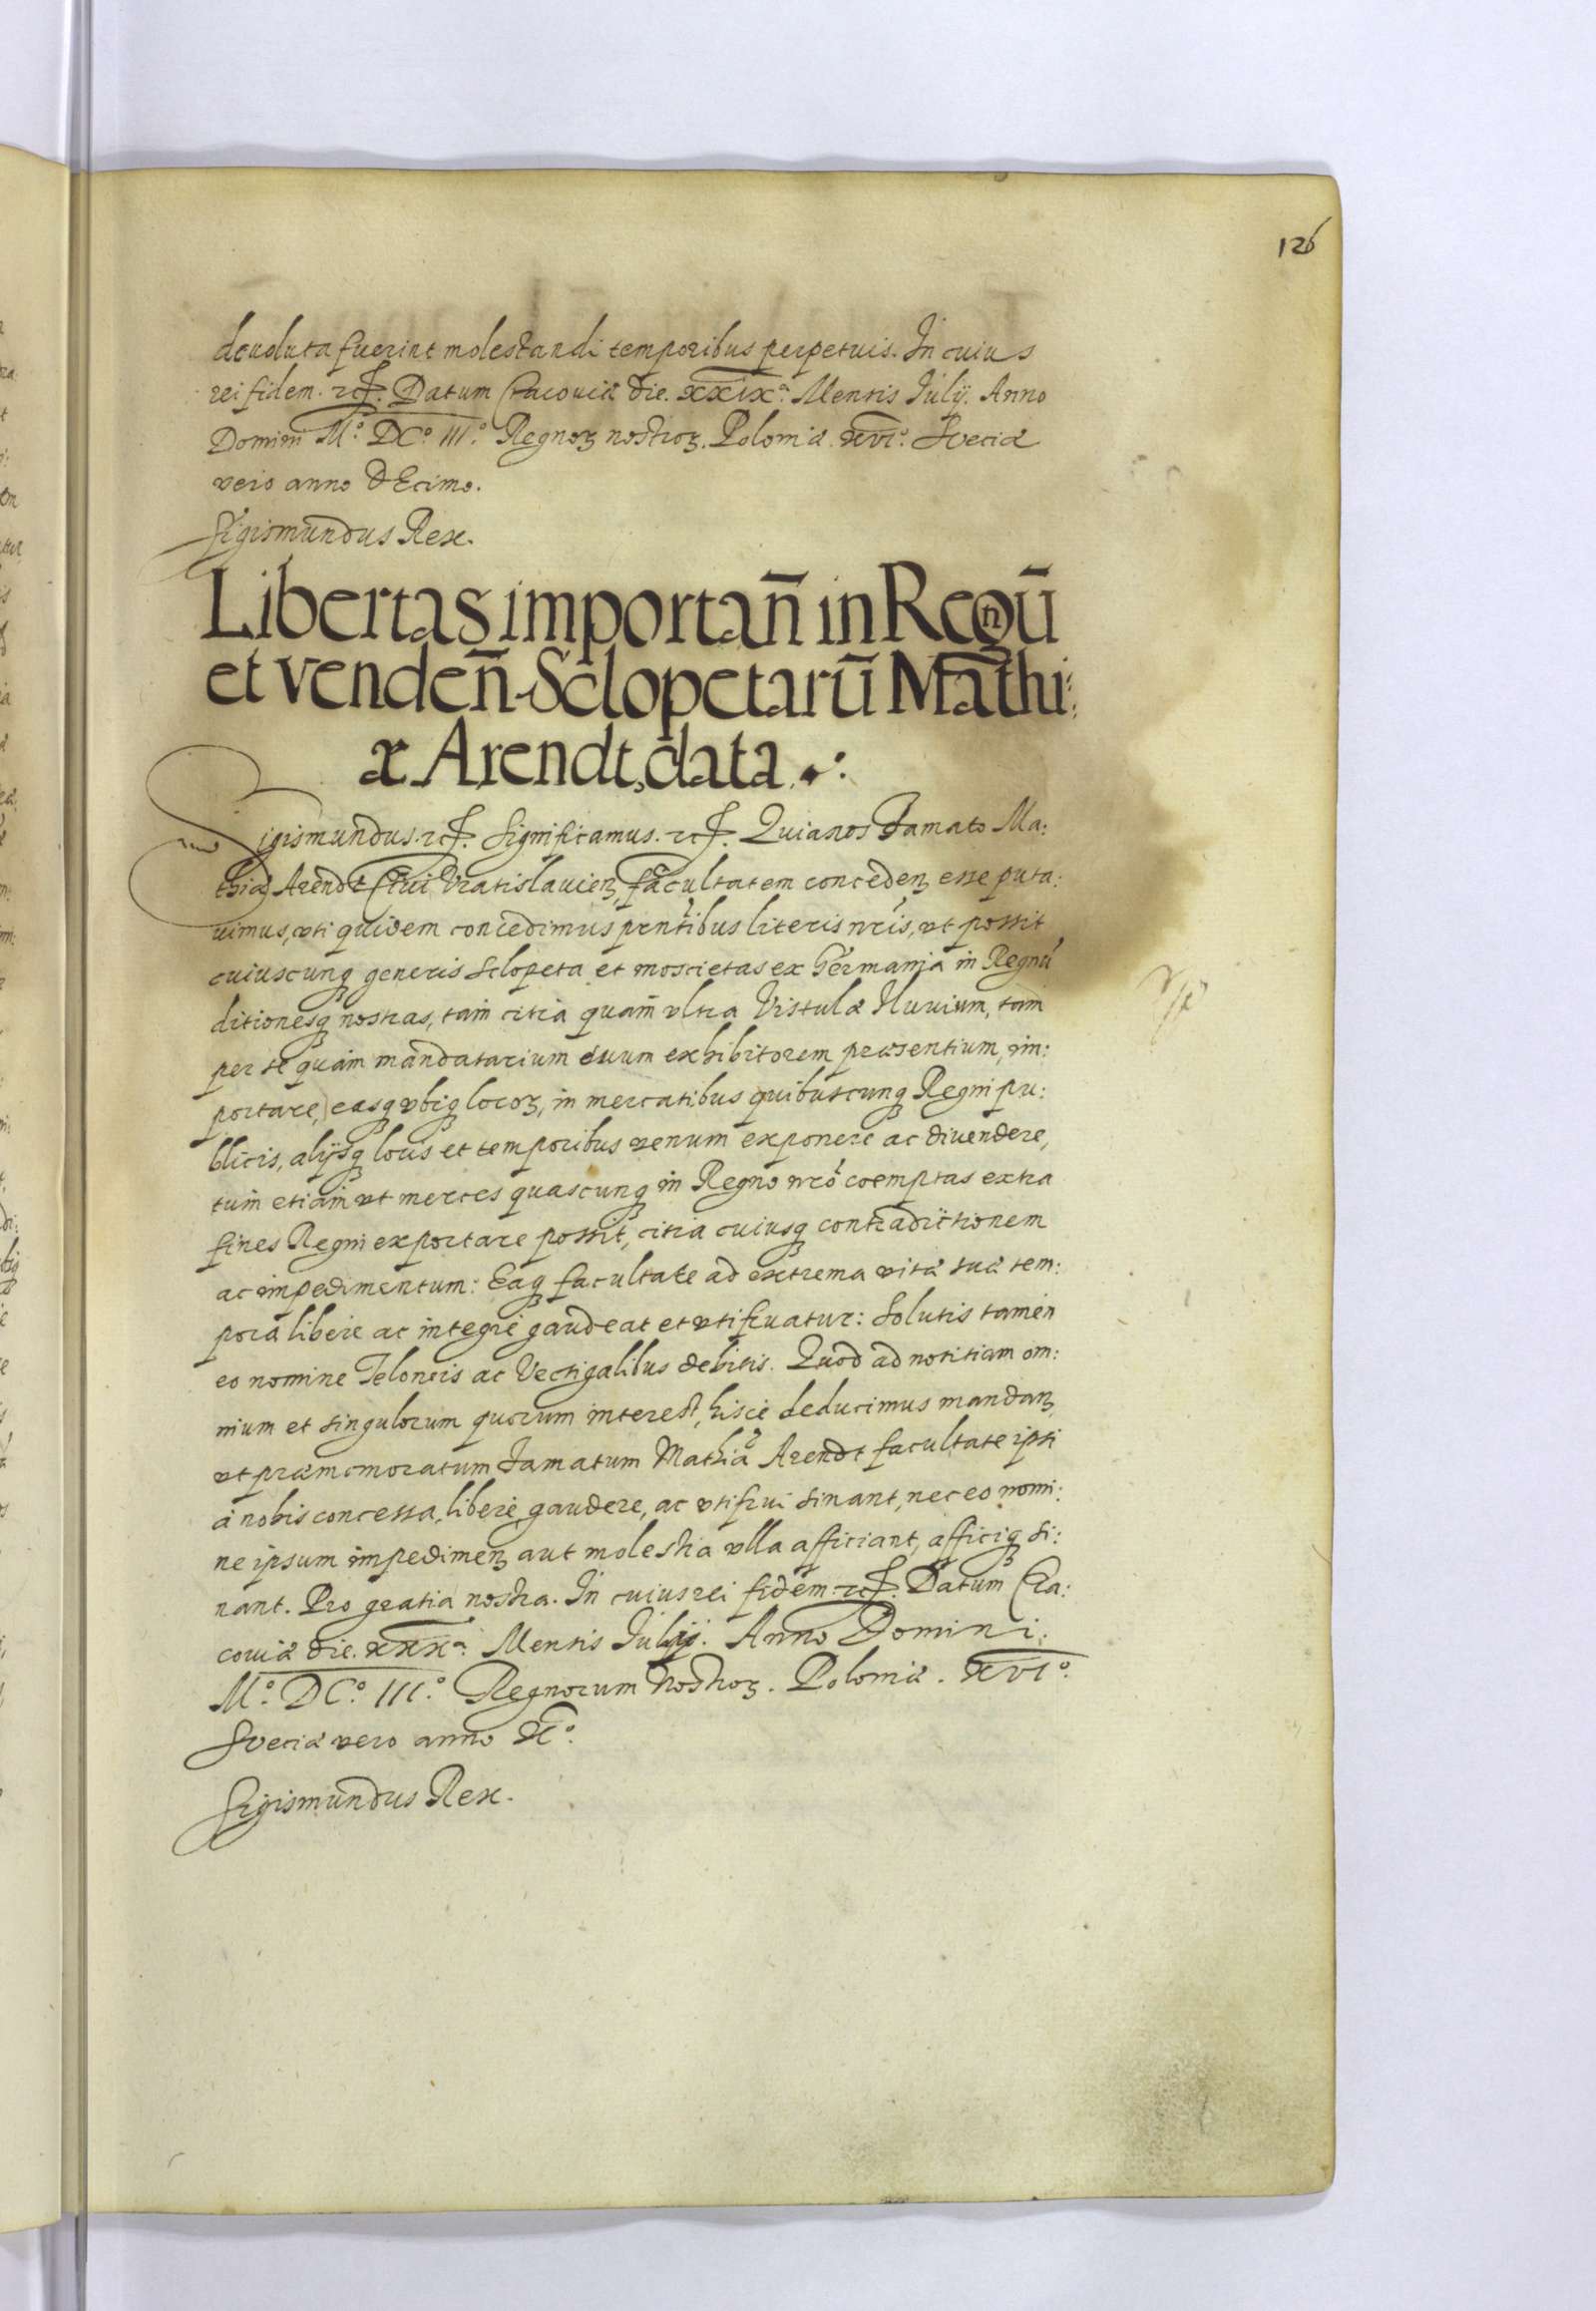 126
deuoluta fuerint molestandi temporibus perpetuis. In cuius
rei fidem. etc. Datum Cracouiæ die. XXIXa. Mensis Iulÿ. Anno
Domini Mo. DCo. IIIo. Regnoꝝ nostroꝝ. Poloniæ. XVIo. Sveciæ
vero anno dEcimo.
Sigismundus Rex.
Libertas importan̄ in Regnū
et venden̄ Sclopetarū Mathi:
æ Arendt, data.
Sigismundus. etc. Significamus. etc. Quia nos Famato Ma:
thiæ Arendt Ciui Vratislauieñ, facultatem conceden̄ esse puta:
uimus, vti quidem concedimus pn̄tibus literis nr̄is, vt possit
cuiuscunqꝫ generis sclopeta et moscietas ex Germania in Regnū
ditionesqꝫ nostras, tam citra quam vltra Vistulæ fluuium, tam
per se quam mandatarium suum exhibitorem præsentium, im:
portare, easqꝫ vbiqꝫ locoꝝ, in mercatibus quibuscunqꝫ Regni pu:
blicis, alÿsqꝫ locis et temporibus venum exponere ac diuendere,
tum etiam vt merces quascunqꝫ in Regno nr̄o coemptas extra
fines Regni exportare possit, citra cuiusqꝫ contradictionem
ac impedimentum: Eaqꝫ facultate ad extrema vitæ suæ tem:
pora libere ac integre gaudeat et vtifruatur: Solutis tamen
eo nomine Teloneis ac Vectigalibus debitis. Quod ad notitiam om:
nium et singulorum quorum interest, hisce deducimus mandan̄
vt præmemoratum Famatum Mathiā Arendt facultate ipsi
a nobis concessa, libere gaudere, ac vtifrui sinant, nec eo nomi:
ne ipsum impedimen̄ aut molestia vlla afficiant, afficiqꝫ si:
nant. Pro gratia nostra. In cuius rei fidem. etc. Datum Cra:
couiæ die. XXXa. Mensis Iulÿ. Anno Domini.
Mo. DCo. IIIo. Regnorum Nostroꝝ. Poloniæ. XVIo.
Sveciæ vero anno Xo.
Sigismundus Rex.